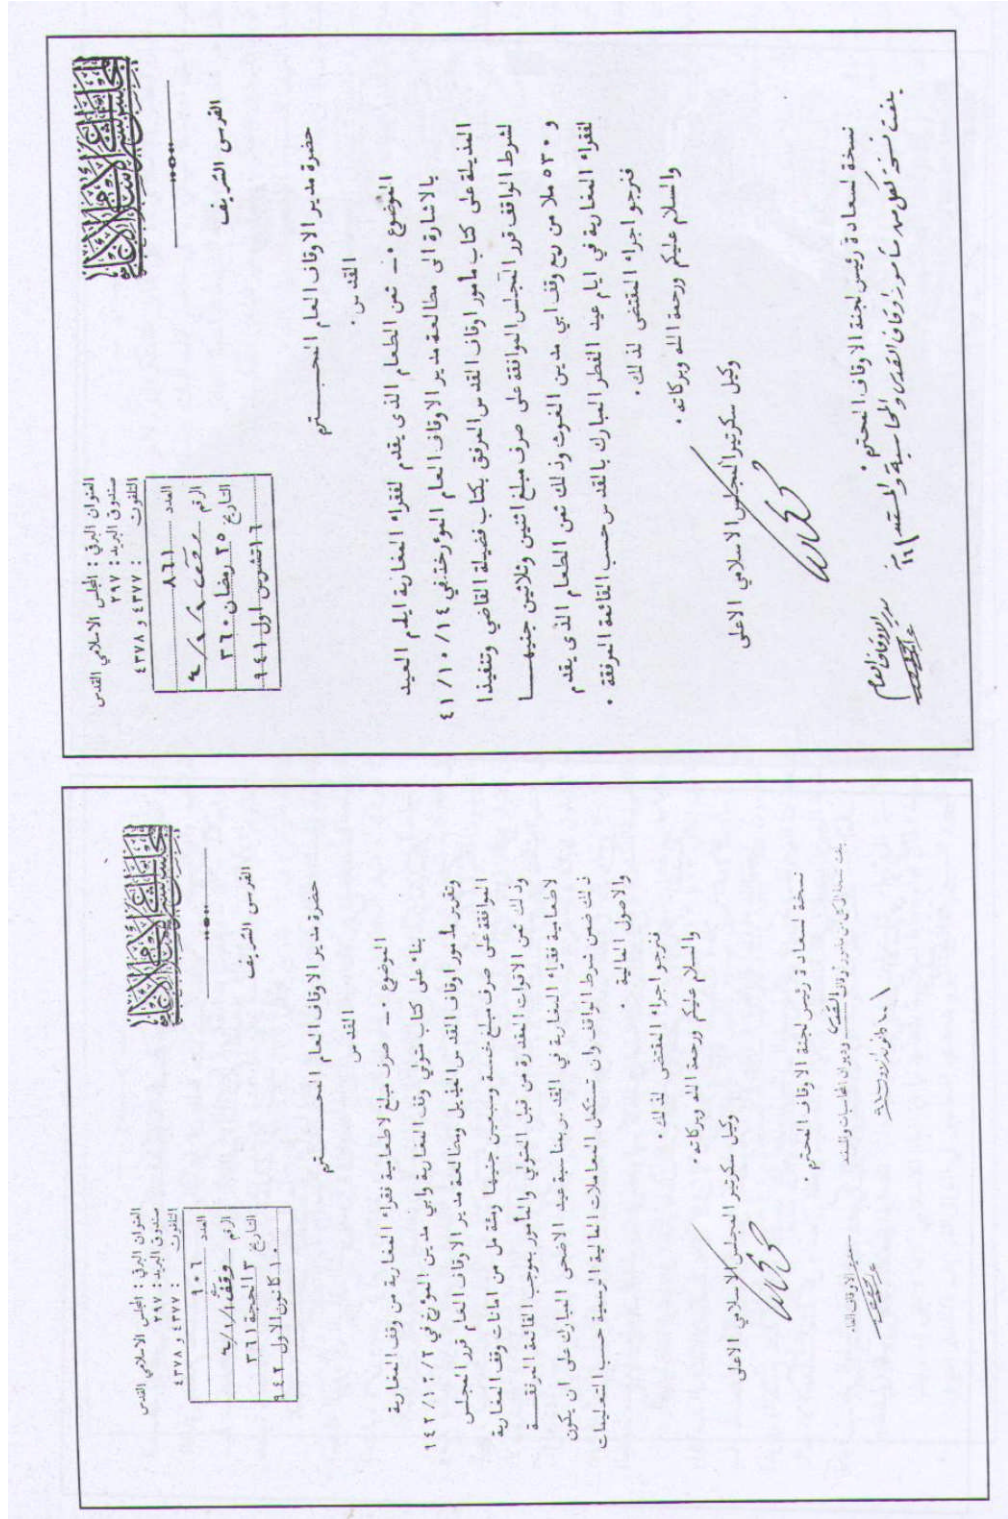 المجلس الاسلامي الاعلى
القدس الشريف
العنوان البرقي : المجلس الاسلامي القدس
صندوق البريد : ٢٩٧
التلفون : ٤٣٧٧ و ٤٣٧٨
العدد ٨٦١
الرقم
التاريخ ٢٥ رمضان ٣٦٠
١٦ تشرين اول ٩٤١
حضرة مدير الاوقاف العام المحـــترم
القدس .
الموضوع :ـ ثمن الطعام الذي يقدم لفقراء المغاربة ايام العيد
بالاشارة الى مطالعة مدير الاوقاف العام المؤرخة في ٤١/١٠/١٤
المذيلة على كتاب مأمور اوقاف القدس المرفق بكتاب فضيلة القاضي وتنفيذا
لشرط الواقف قرر المجلس الموافقة على صرف مبلغ اثنين وثلاثين جنيهـــا
و ٥٣٠ ملا من ريع وقف ابي مدين الغوث وذلك ثمن الطعام الذي يقدم
لفقراء المغاربة في ايام عيد الفطر المبارك بالقدس حسب القائمة المرفقة .
فنرجو اجراء المقتضى لذلك .
والسلام عليكم ورحمة الله وبركاته .
وكيل سكرتير المجلس الاسلامي الاعلى
نسخة لسعادة رئيس لجنة الاوقاف المحترم .
بعثت نسخة لكل من مأمور اوقاف القدس والمحاسبة
مدير الاوقاف العام
المجلس الاسلامي الاعلى
القدس الشريف
العنوان البرقي : المجلس الاسلامي القدس
صندوق البريد : ٢٩٧
التلفون : ٤٣٧٧ و ٤٣٧٨
العدد ٩٠٦
الرقم
التاريخ ٣ الحجة ٣٦١
١٠ كانون الاول ٩٤٢
حضرة مدير الاوقاف العام المحـــترم
القدس
الموضوع :ـ صرف مبلغ لاطعامية فقراء المغاربة من وقف المغاربة
بناء على كتاب متولي وقف المغاربة وابي مدين المؤرخ في ٩٤٢/١٢/٢
وتقرير مأمور أوقاف القدس المذيل ومطالعة مدير الاوقاف العام قرر المجلس
الموافقة على صرف مبلغ خمسة وسبعين جنيها ومئة مل من امانات وقف المغاربة
وذلك ثمن الاقوات المقدرة من قبل المتولي والمأمور بموجب القائمة المرفقـــة
لاطعامية فقراء المغاربة في القدس بمناسبة عيد الاضحى المبارك على ان يكون
ذلك ضمن شرط الواقف وان تستكمل المعاملات المالية الرسمية حسب التعليمات
والاصول المالية
فنرجو اجراء المقتضى لذلك .
والسلام عليكم ورحمة الله وبركاته .
وكيل سكرتير المجلس الاسلامي الاعلى
نسخة لسعادة رئيس لجنة الاوقاف المحترم .
مدير الاوقاف العام